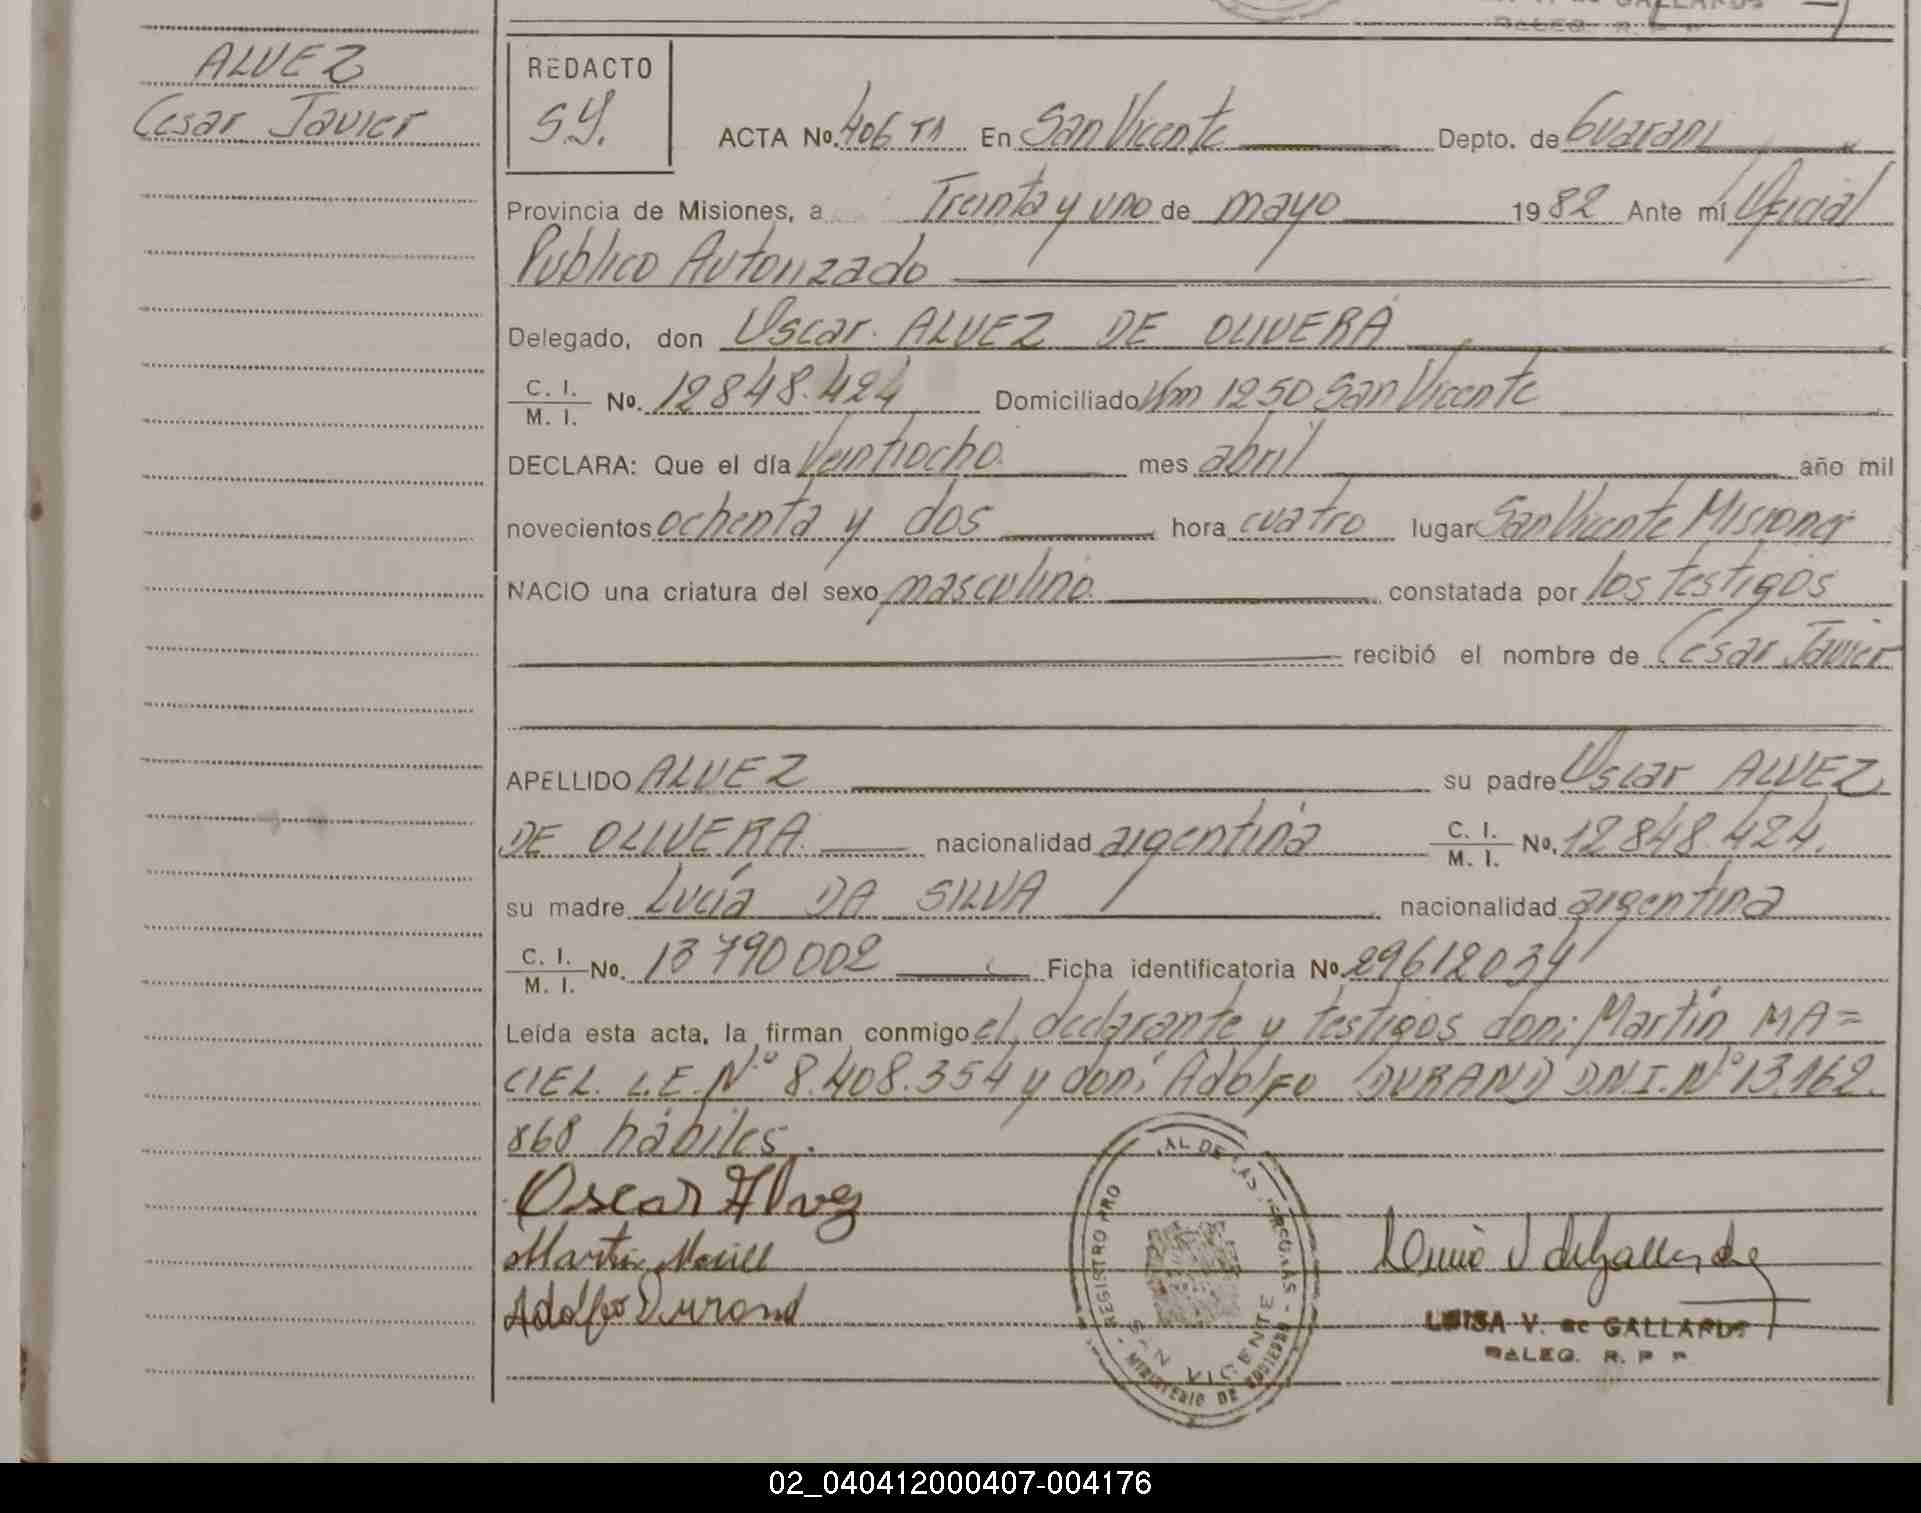 ALVEZ
Cesar Javier
REDACTO
S.Y.
ACTA No. 406 T1 En San Vicente Depto. de Guaraní
Provincia de Misiones, a Treinta y uno de mayo 1982 Ante mí Oficial
Publico Autorizado
Delegado, don Oscar ALVEZ DE OLIVERA
C. I. / M. I. No. 12848.424 Domiciliado Km 1250 San Vicente
DECLARA: Que el día Veintiocho mes abril año mil
novecientos ochenta y dos hora cuatro lugar San Vicente Misiones
NACIO una criatura del sexo masculino constatada por los testigos
recibió el nombre de César Javier
APELLIDO ALVEZ su padre Oscar ALVEZ
DE OLIVERA nacionalidad argentina C. I. / M. I. No. 12848.424.
su madre Lucía DA SILVA nacionalidad argentina
C. I. / M. I. No. 13790002 Ficha identificatoria No 29612034
Leída esta acta, la firman conmigo el declarante y testigos don: Martín MA=
CIEL. L.E. N° 8.408.354 y don: Adolfo DURAND D.N.I. N° 13.162.
868 hábiles.
Oscar Alvez
Martin
Adolfo Durand
LUISA V. de GALLARDO
DALEG. R. P P
REGISTRO PRO AL DE LAS
SAN VICENTE
MINISTERIO DE GOBIERNO
02_040412000407-004176